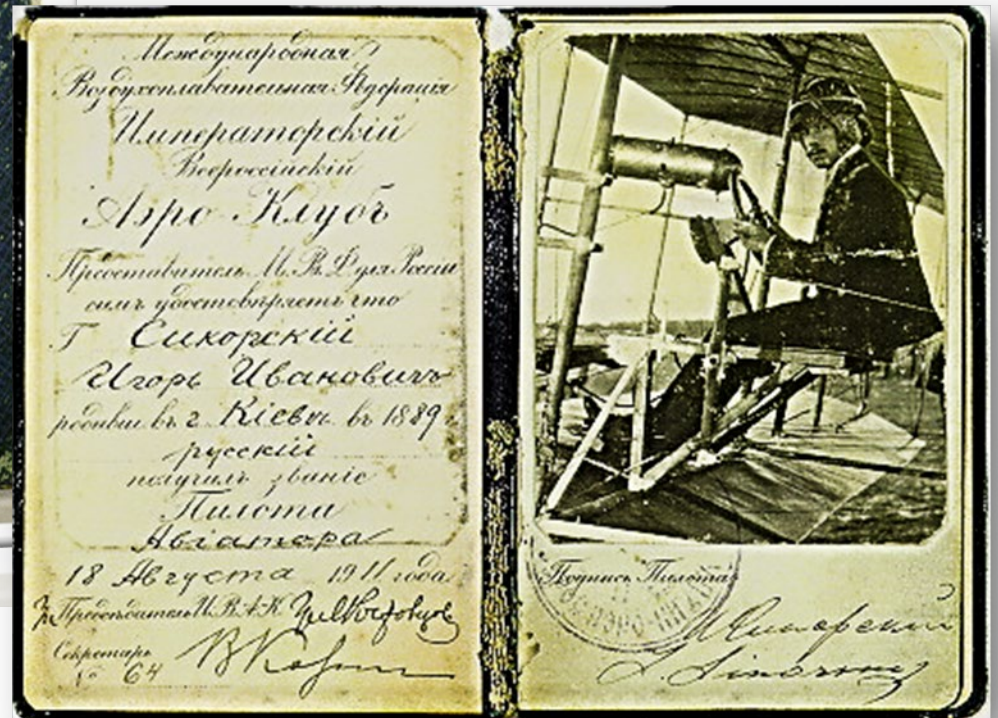 Международная
Воздухоплавательная Федерація
Императорскій
Всероссійскій
Аэро Клубъ
Представитель М. В. Ф. для Россіи
симъ удостовѣряетъ что
Г Сикорскій
Игорь Ивановичъ
родивш въ г. Кіевѣ въ 1889 г.
русскій
получилъ званіе
Пилота
Авіатора
18 Августа 1911 года
Предсѣдатель И. В. А. К.
Секретарь
№ 64
Подпись Пилота
Сикорскій
I. Sikorsky